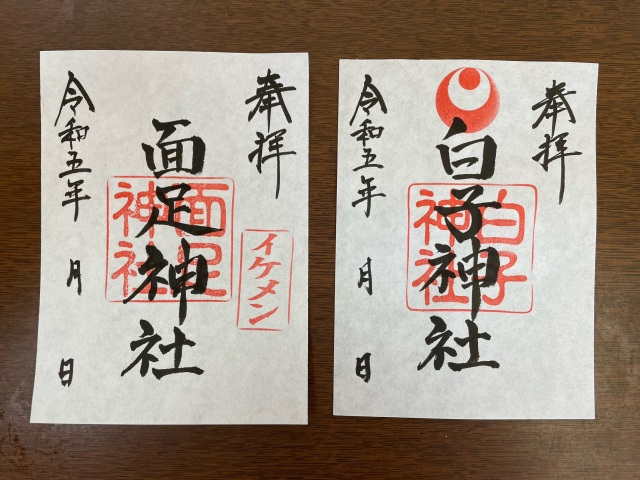 奉拝
面足神社
面足神社
イケメン
令和五年 月 日
奉拝
白子神社
白子神社
令和五年 月 日